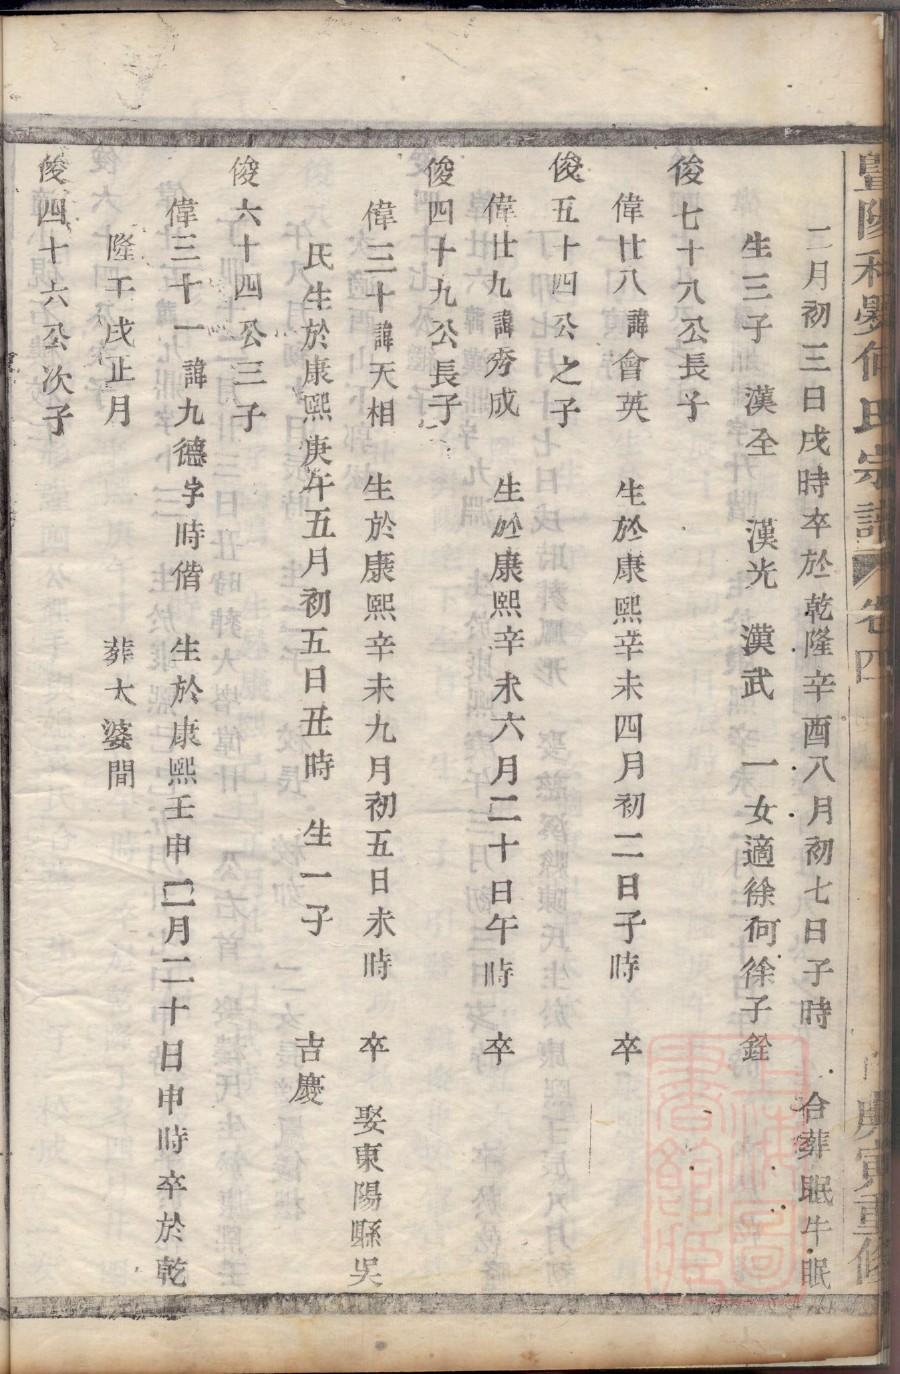 二月初三日戌時卒於乾隆辛酉八月初七日子時 合葬眠牛眠
生三子 漢全 漢光 漢武 一女適徐何徐子銓
俊七十八公長子
偉廿八諱會英 生於康熙辛未四月初二日子時 卒
俊五十四公之子
偉廿九諱秀成 生於康熙辛未六月二十日午時 卒
俊四十九公長子
偉三十諱天相 生於康熙辛未九月初五日未時 卒 娶東陽縣吳
氏生於康熙庚午五月初五日丑時 生一子 吉慶
俊六十四公三子
偉三十一諱九德字時偕 生於康熙壬申二月二十日申時卒於乾
隆壬戌正月 葬大婆間
俊四十六公次子